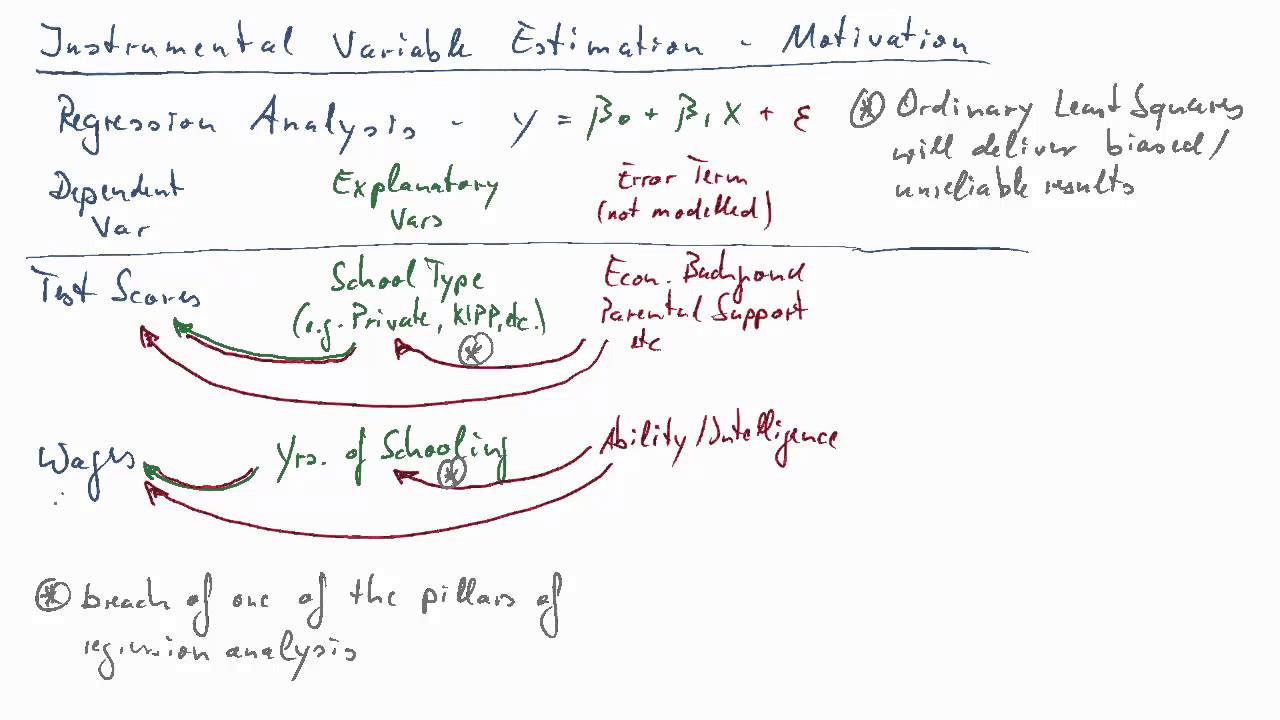 Instrumental Variable Estimation - Motivation
Regression Analysis - y = β0 + β1 X + ε
⊛ Ordinary Least Squares
will deliver biased/
unreliable results
Dependent
Var
Explanatory
Vars
Error Term
(not modelled)
Test Scores
School Type
(e.g. Private, KIPP, etc.)
Econ. Background
Parental Support
etc
⊛
Wages
Yrs. of Schooling
Ability/Intelligence
⊛
⊛ breach of one of the pillars of
regression analysis